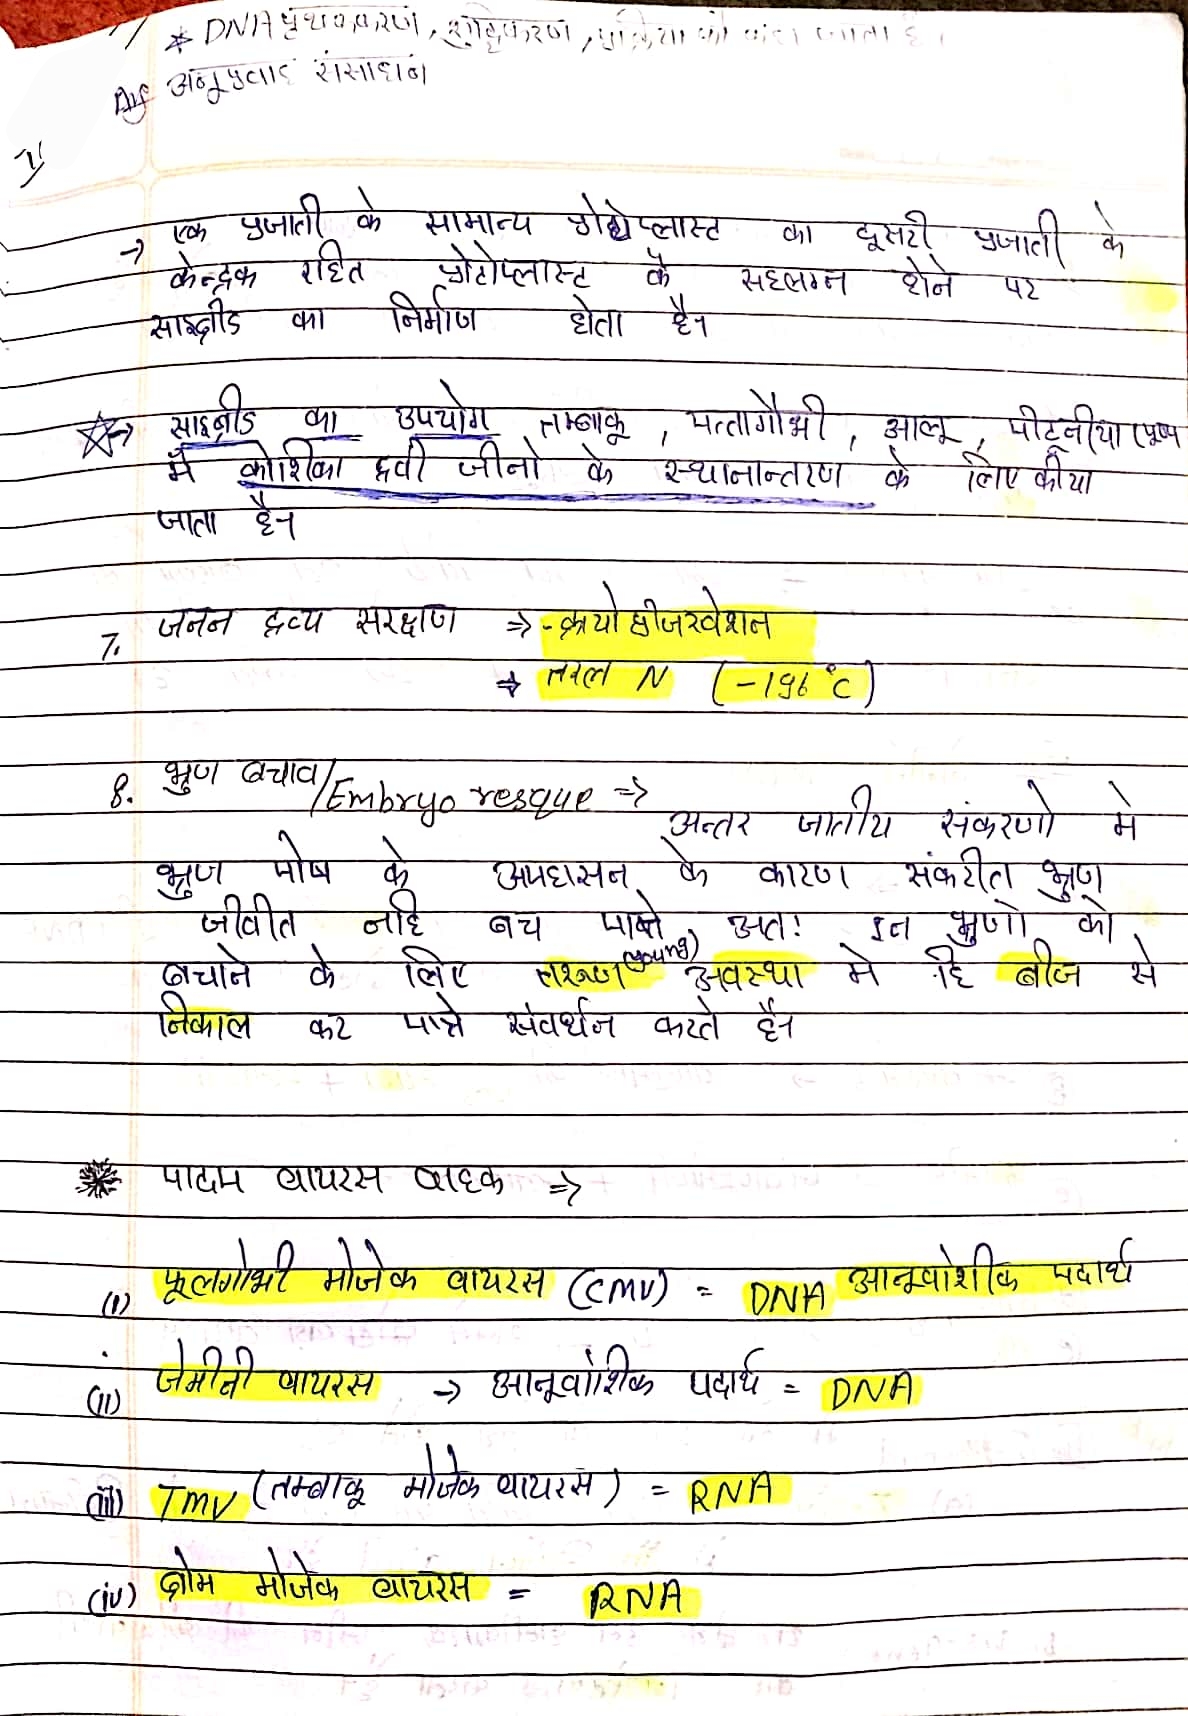 * DNA पृथक्करण, शुद्धिकरण, प्रक्रिया को कहा जाता है।
अनुप्रवाह संसाधन
→ एक प्रजाती के सामान्य प्रोटोप्लास्ट का दूसरी प्रजाती के
केन्द्रक रहित प्रोटोप्लास्ट के सहलग्न होने पर
साइब्रीड का निर्माण होता है।
☆→ साइब्रीड का उपयोग तम्बाकू, पत्तागौभी, आलू, पीटूनीया (पुष्प
में कोशिका द्रवी जीनो के स्थानान्तरण के लिए कीया
जाता है।
7. जनन द्रव्य सरंक्षण ⇒ - क्रायोप्रीजरवेशन
⇒ तरल N (-196°C)
8. भ्रुण बचाव/Embryo resque ⇒
अन्तर जातीय संकरणो मे
भ्रुण पोष के अपह्रासन के कारण संकरीत भ्रुण
जीवीत नहि बच पाते अत: इन भ्रुणो को
बचाने के लिए तरूण (young) अवस्था मे हि बीज से
निकाल कर पात्रे संवर्धन करते है।
* पादप वायरस वाहक ⇒
(i) फूलगोभी मोजेक वायरस (CMV) = DNA आनूवांशीक पदार्थ
(ii) जेमीनी वायरस → आनूवांशिक पदार्थ = DNA
(iii) TMV (तम्बाकू मोजेक वायरस) = RNA
(iv) ब्रोम मोजेक वायरस = RNA